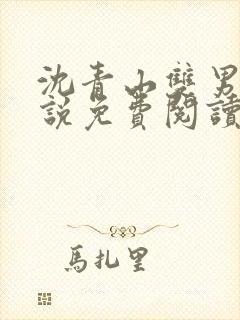 沈青山雙男
說免費閱讀
馬扎里